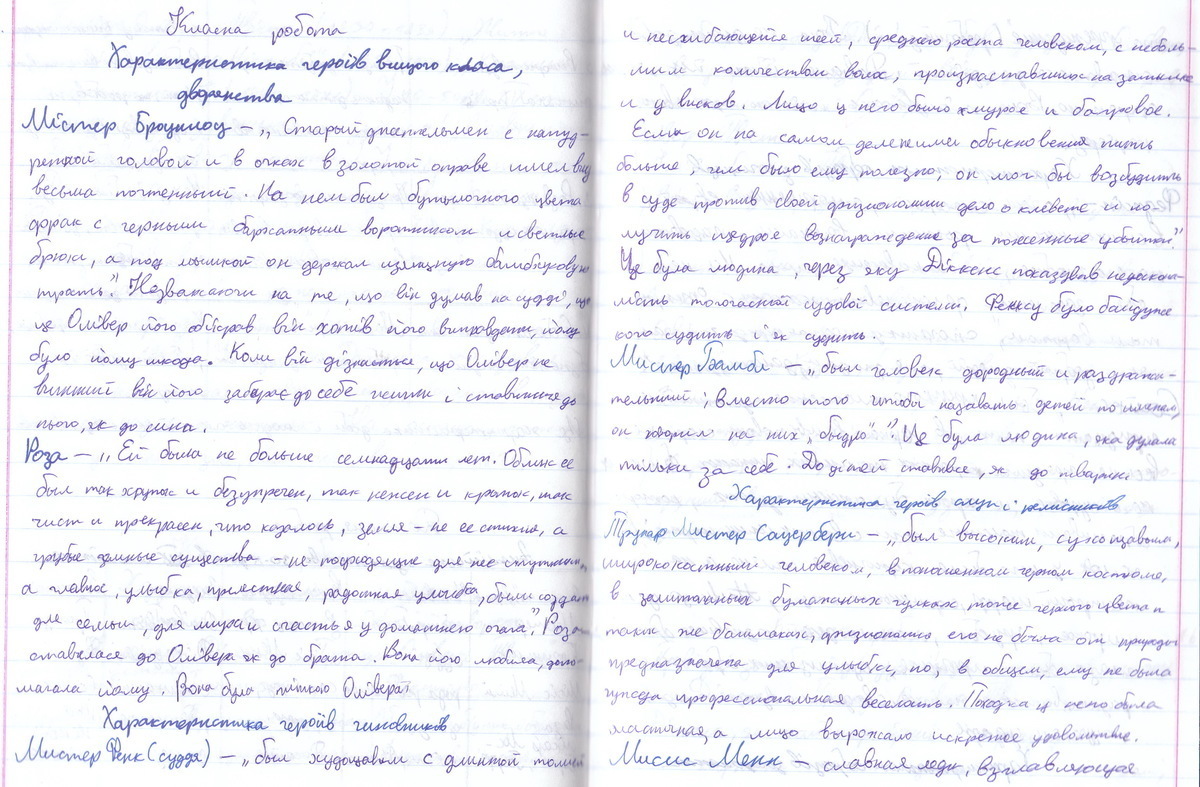 Класна робота
Характеристика героїв вищого класа,
дворянства
Містер Броунлоу – „Старый джентельмен с напуд-
ренной головой и в очках в золотой оправе имел вид
весьма почтенный. На нем был бутылочного цвета
фрак с черными бархатным воротником и светлые
брюки, а под мышкой он держал изящную бамбуковую
трость." Незважаючи на те, що він думав на судді, що
це Олівер його обікрав він хотів його виправдати, йому
було йому шкода. Коли він дізнається, що Олівер не
винний він його забирає до себе жити і ставиться до
нього, як до сина.
Роза – „Ей была не больше семнадцати лет. Облик ее
был так хрупок и безупречен, так нежен и кроток, так
чист и прекрасен, что казалось, земля – не ее стихия, а
грубые земные существа – не подходящие для нее спутники,
а главное, улыбка, прелестная, радостная улыбка, были созданы
для семьи, для мира и счастья у домашнего очага." Роза
ставилася до Олівера як до брата. Вона його любила, допо-
магала йому. Вона була тіткою Олівера
Характеристика героїв чиновників
Мистер Фенк (суддя) – „был худощавым с длинной талией
и несгибающейся шеей, среднего роста человеком, с неболь-
шим количеством волос, произраставших на затылке
и у висков. Лицо у него было хмурое и багровое.
Если он на самом деле не имел обыкновения пить
больше, чем было ему полезно, он мог бы возбудить
в суде против своей физиономии дело о клевете и по-
лучить щедрое вознаграждение за понесенные убытки".
Це була людина, через яку Діккенс показував недоско-
лість тогочасної судової системи. Фенксу було байдуже
кого судить і як судить.
Мистер Бамбл – „был человек дородный и раздражи-
тельный; Вместо того чтобы называть детей по имени,
он говорил на них „быдло"". Це була людина, яка думала
тільки за себе. До дітей ставився, як до тварини
Характеристика героїв слуг і ремісників
Трунар Мистер Сауербери – „был высоким, сухощавым,
ширококостным человеком, в поношенном черном костюме,
в заштопанных бумажных чулках тоже черного цвета и
таких же башмаках, физиономия его не была от природы
предназначена для улыбки, но, в общем, ему не была
чужда профессиональная веселость. Походка у него была
эластичная, а лицо выражало искреннее удовольствие.
Мисис Менн – славная леди, взглавляющая